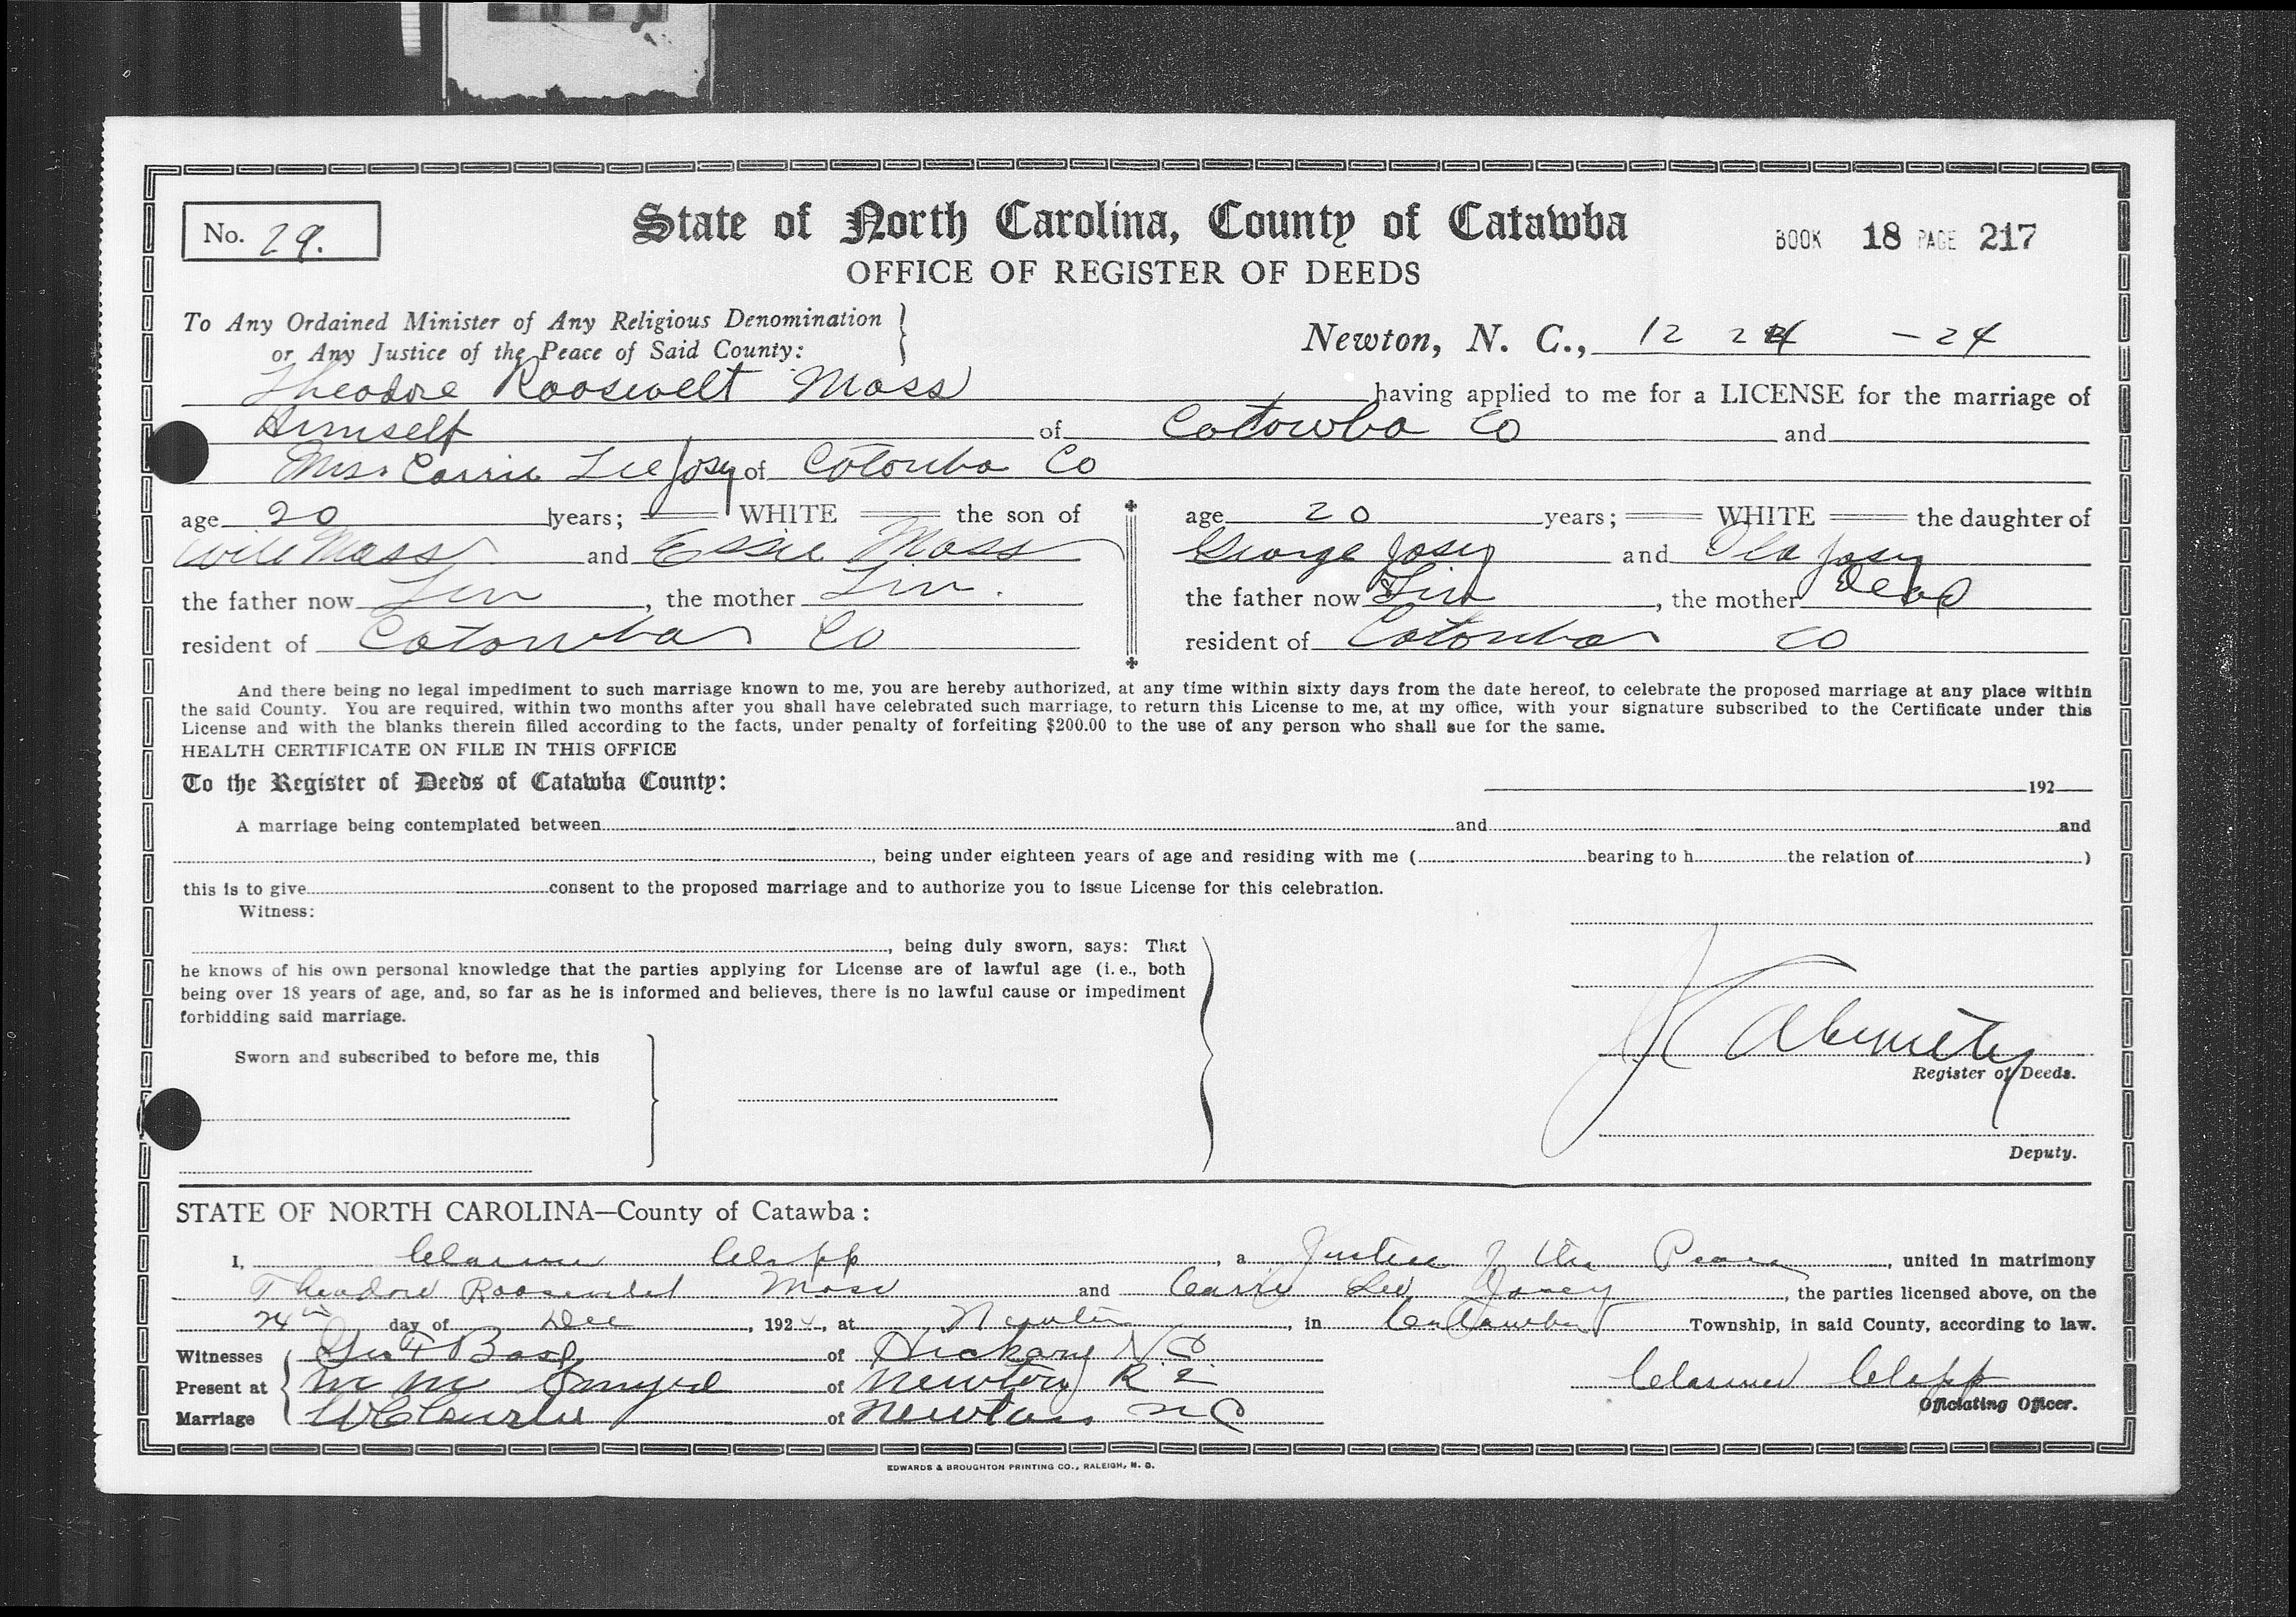 No. 29.
State of North Carolina, County of Catawba
BOOK 18 PAGE 217
OFFICE OF REGISTER OF DEEDS
To Any Ordained Minister of Any Religious Denomination
or Any Justice of the Peace of Said County:
Newton, N. C., 12 24 - 24
Theodore Roosevelt Moss having applied to me for a LICENSE for the marriage of
Himself of Catawba Co and
Mrs. Carrie Lee Josey of Catawba Co
age 20 years; WHITE the son of
Will Moss and Essie Moss
the father now Liv, the mother Liv.
resident of Catawba Co
age 20 years; WHITE the daughter of
George Josey and Ola Josey
the father now Liv, the mother Dead
resident of Catawba Co
And there being no legal impediment to such marriage known to me, you are hereby authorized, at any time within sixty days from the date hereof, to celebrate the proposed marriage at any place within
the said County. You are required, within two months after you shall have celebrated such marriage, to return this License to me, at my office, with your signature subscribed to the Certificate under this
License and with the blanks therein filled according to the facts, under penalty of forfeiting $200.00 to the use of any person who shall sue for the same.
HEALTH CERTIFICATE ON FILE IN THIS OFFICE
To the Register of Deeds of Catawba County:
192
A marriage being contemplated between and and
, being under eighteen years of age and residing with me ( bearing to h the relation of )
this is to give consent to the proposed marriage and to authorize you to issue License for this celebration.
Witness:
, being duly sworn, says: That
he knows of his own personal knowledge that the parties applying for License are of lawful age (i. e., both
being over 18 years of age, and, so far as he is informed and believes, there is no lawful cause or impediment
forbidding said marriage.
Sworn and subscribed to before me, this
Abernethy
Register of Deeds.
Deputy.
STATE OF NORTH CAROLINA—County of Catawba:
I, Clarence Clapp, a Justice of the Peace, united in matrimony
Theodore Roosevelt Moss and Carrie Lee Josey, the parties licensed above, on the
24th day of Dec, 1924, at Newton, in Catawba Township, in said County, according to law.
Witnesses Geo F Bost of Hickory N C
Present at M M Smyre of Newton R 2
Marriage of Newton N C
Clarence Clapp
Officiating Officer.
EDWARDS & BROUGHTON PRINTING CO., RALEIGH, N. C.